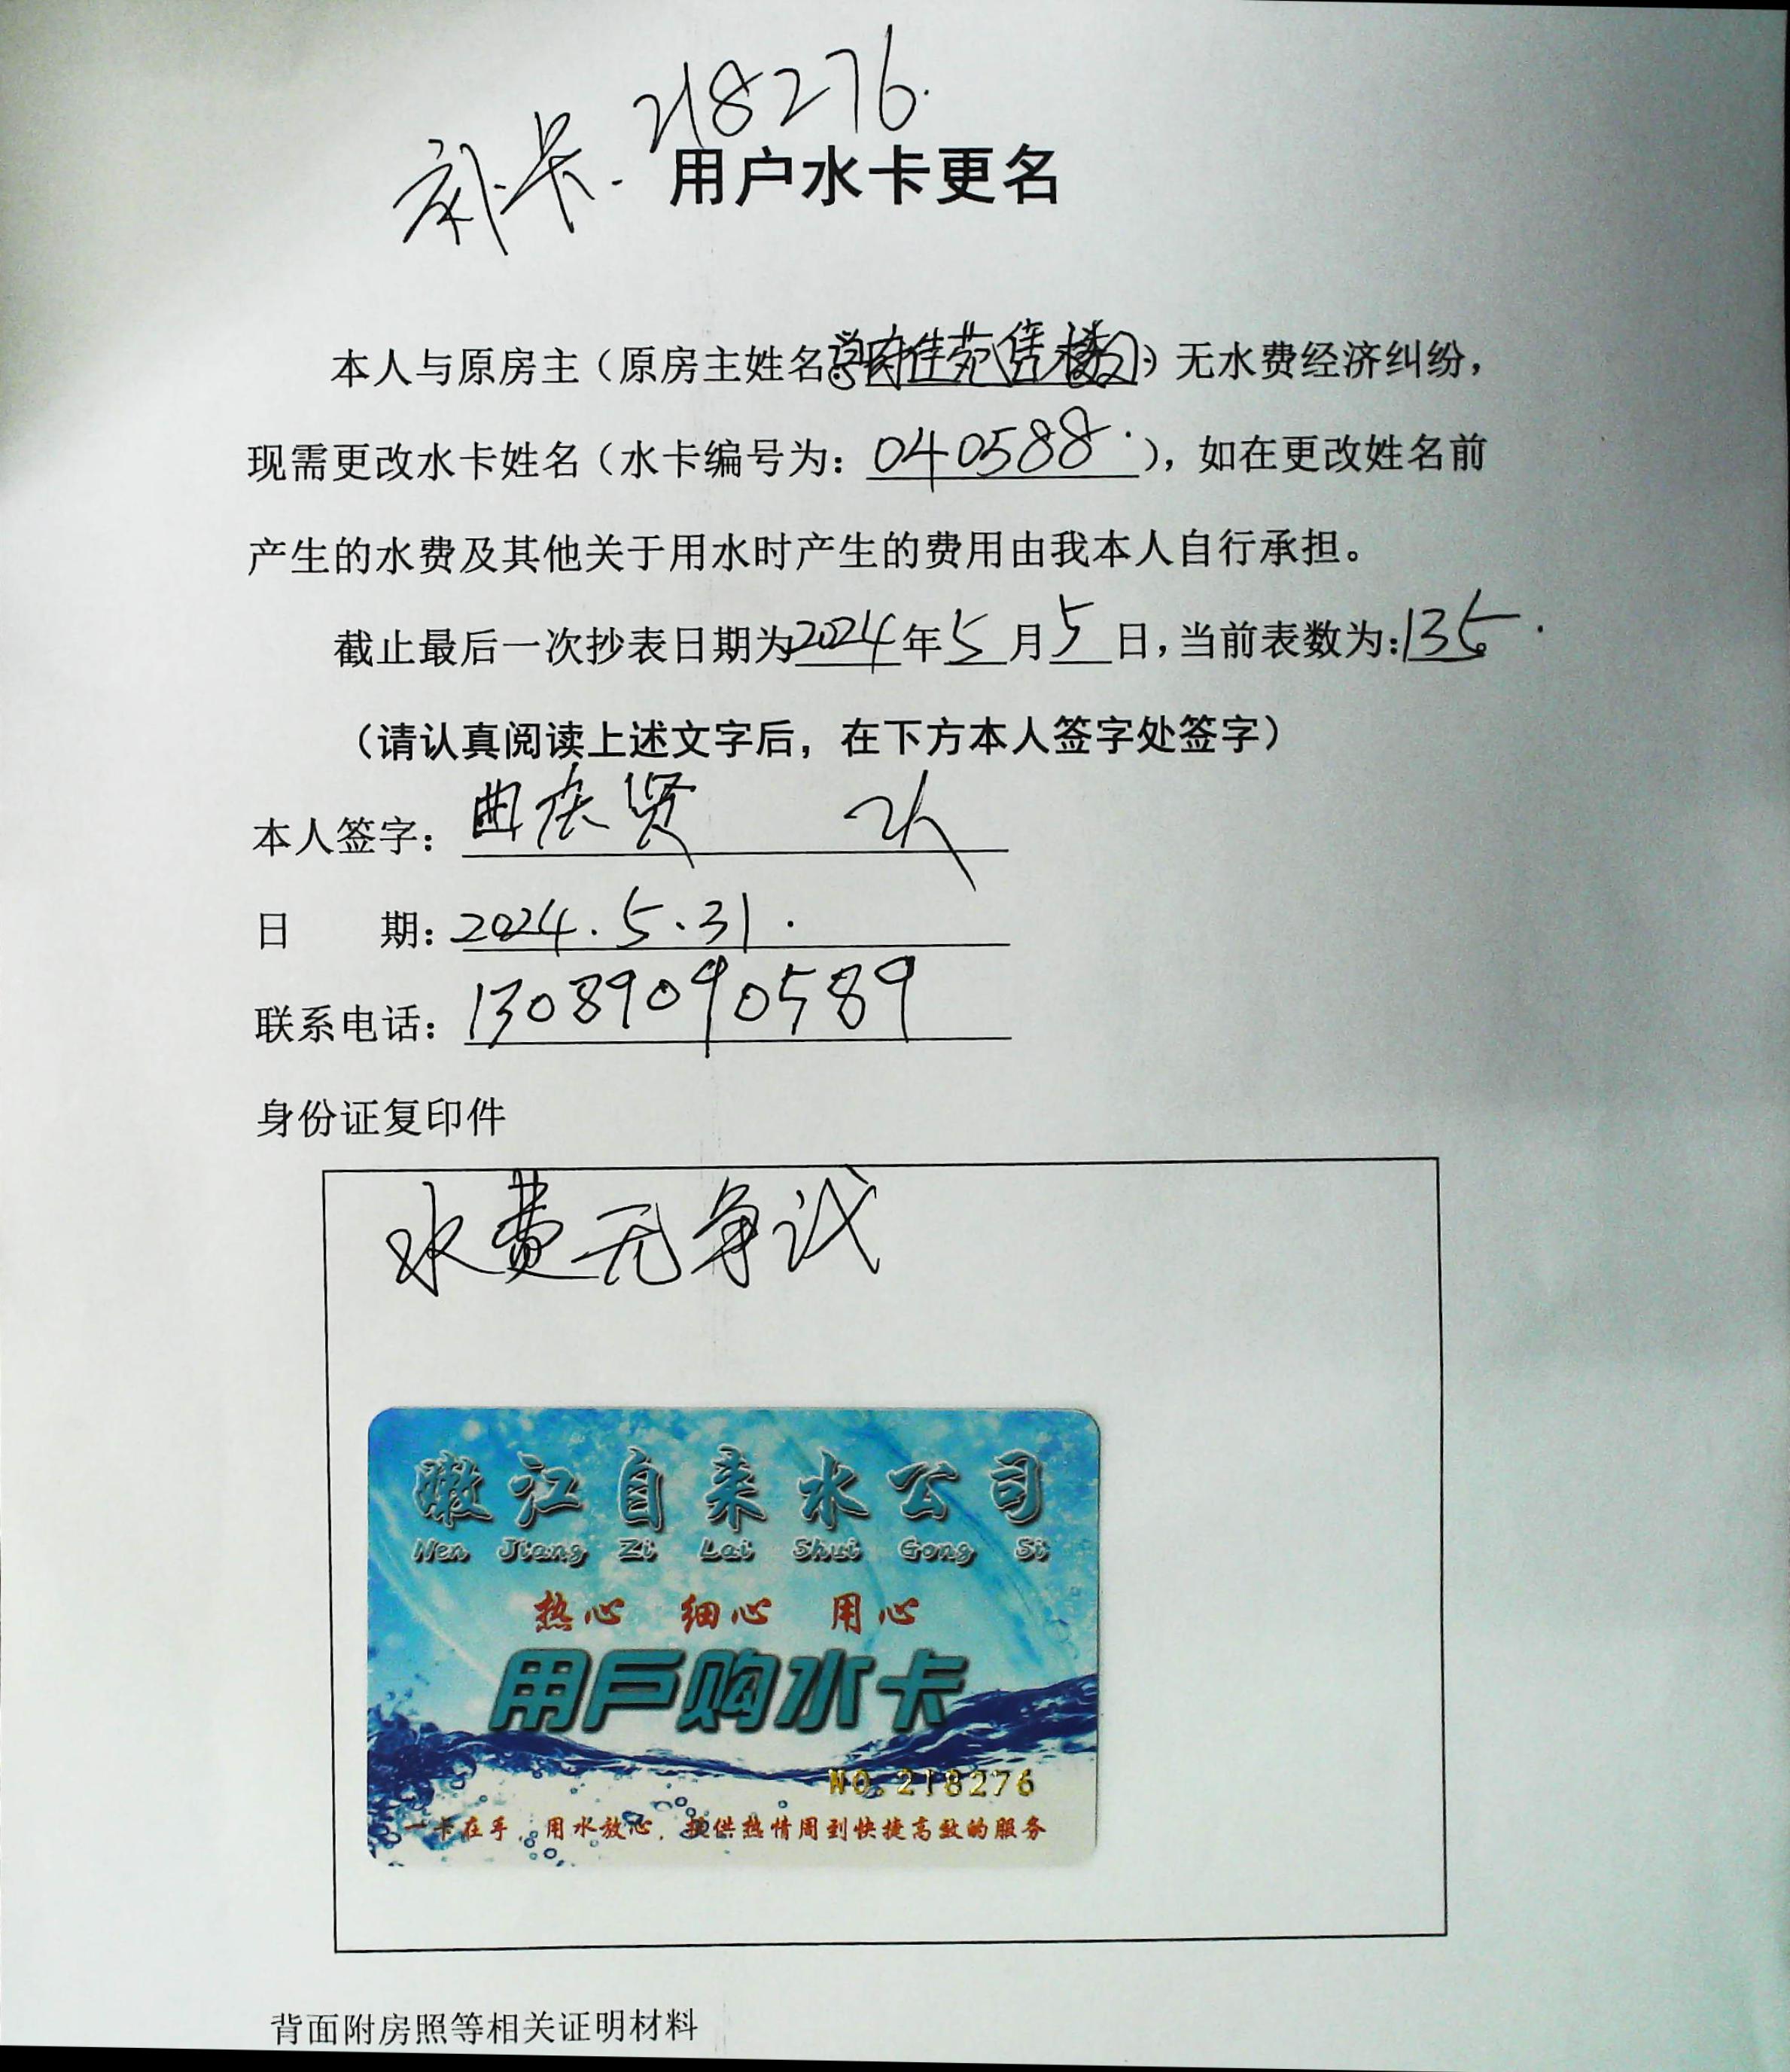 218276.
补卡.
用户水卡更名
本人与原房主（原房主姓名：学府佳苑售楼）无水费经济纠纷，
现需更改水卡姓名（水卡编号为：040588.），如在更改姓名前
产生的水费及其他关于用水时产生的费用由我本人自行承担。
截止最后一次抄表日期为2024年5月5日，当前表数为:135.
（请认真阅读上述文字后，在下方本人签字处签字）
本人签字：曲庆贤
日 期：2024.5.31.
联系电话：13089090589
身份证复印件
水费无争议
嫩江自来水公司
Nen Jiang Zi Lai Shui Gong Si
热心 细心 用心
用戶购水卡
NO.218276
一卡在手，用水放心，提供热情周到快捷高效的服务
背面附房照等相关证明材料